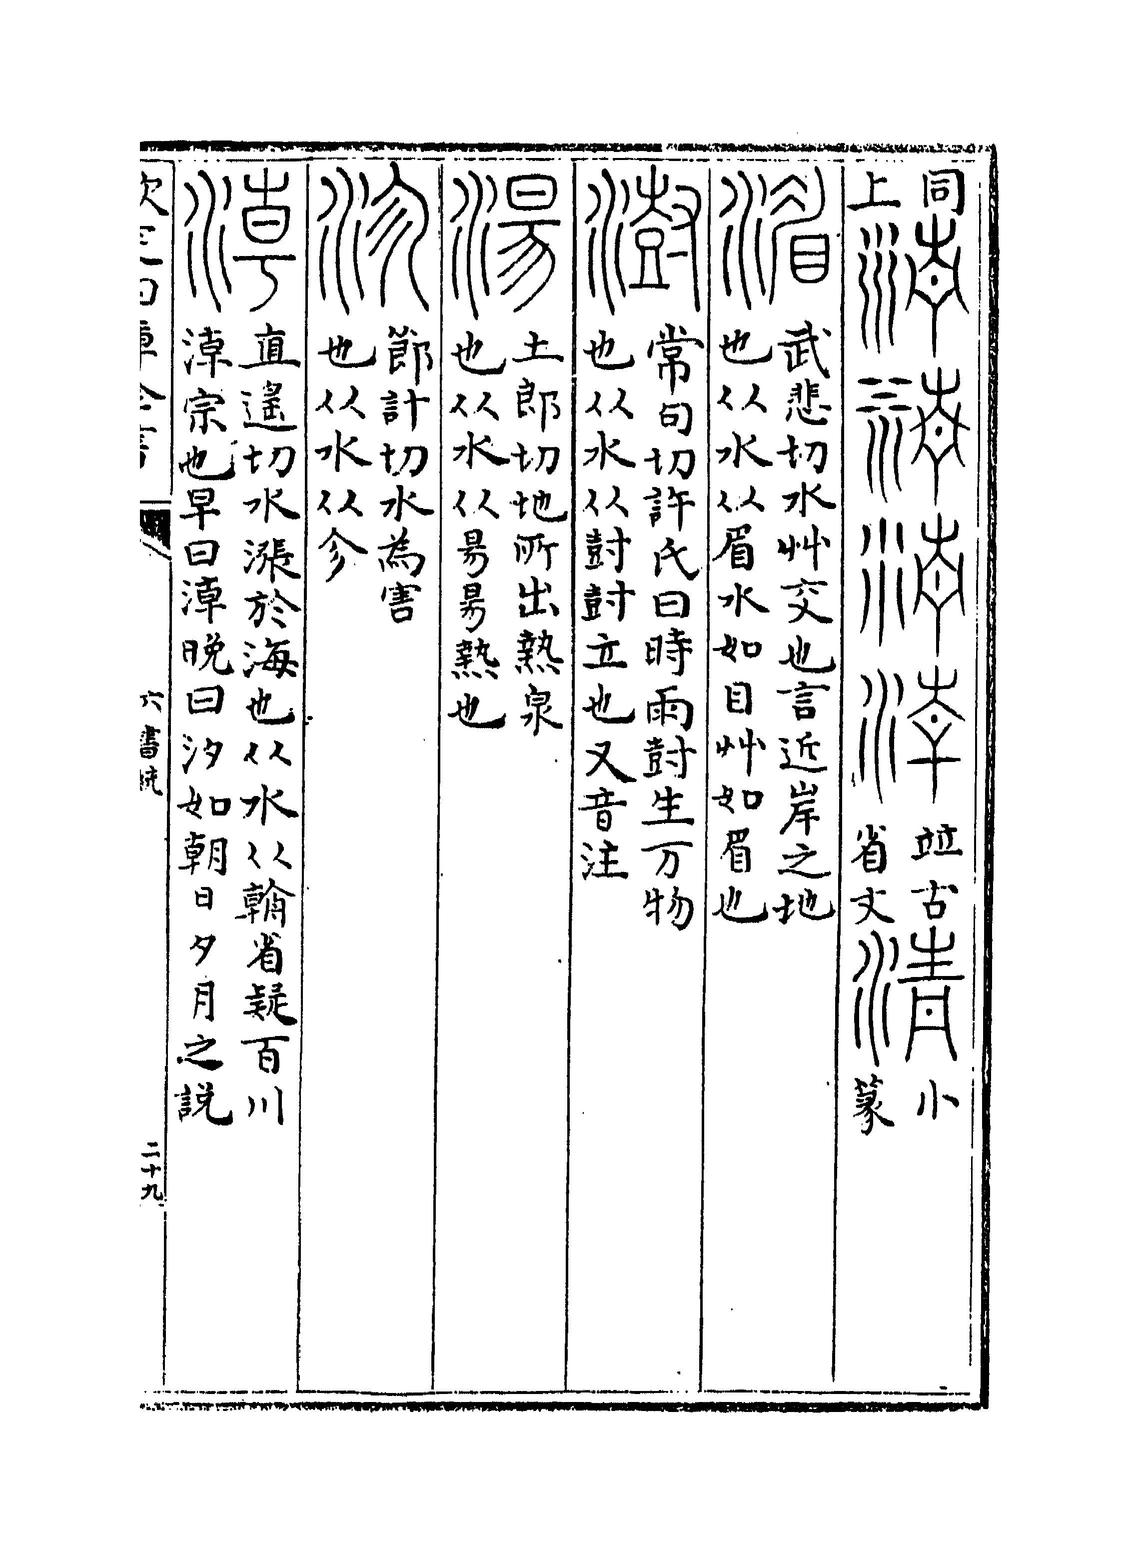 同上
竝古省文
清
小篆
湄
武悲切水艸交也言近岸之地
也从水从眉水如目艸如眉也
澍
常句切許氏曰時雨尌生万物
也从水从尌尌立也又音注
湯
土郎切地所出熱泉
也从水从昜昜熱也
沴
節計切水為害
也从水从㐱
淖
直遙切水漲於海也从水从翰省疑百川
淖宗也早曰淖晚曰汐如朝日夕月之說
六書統
二十九